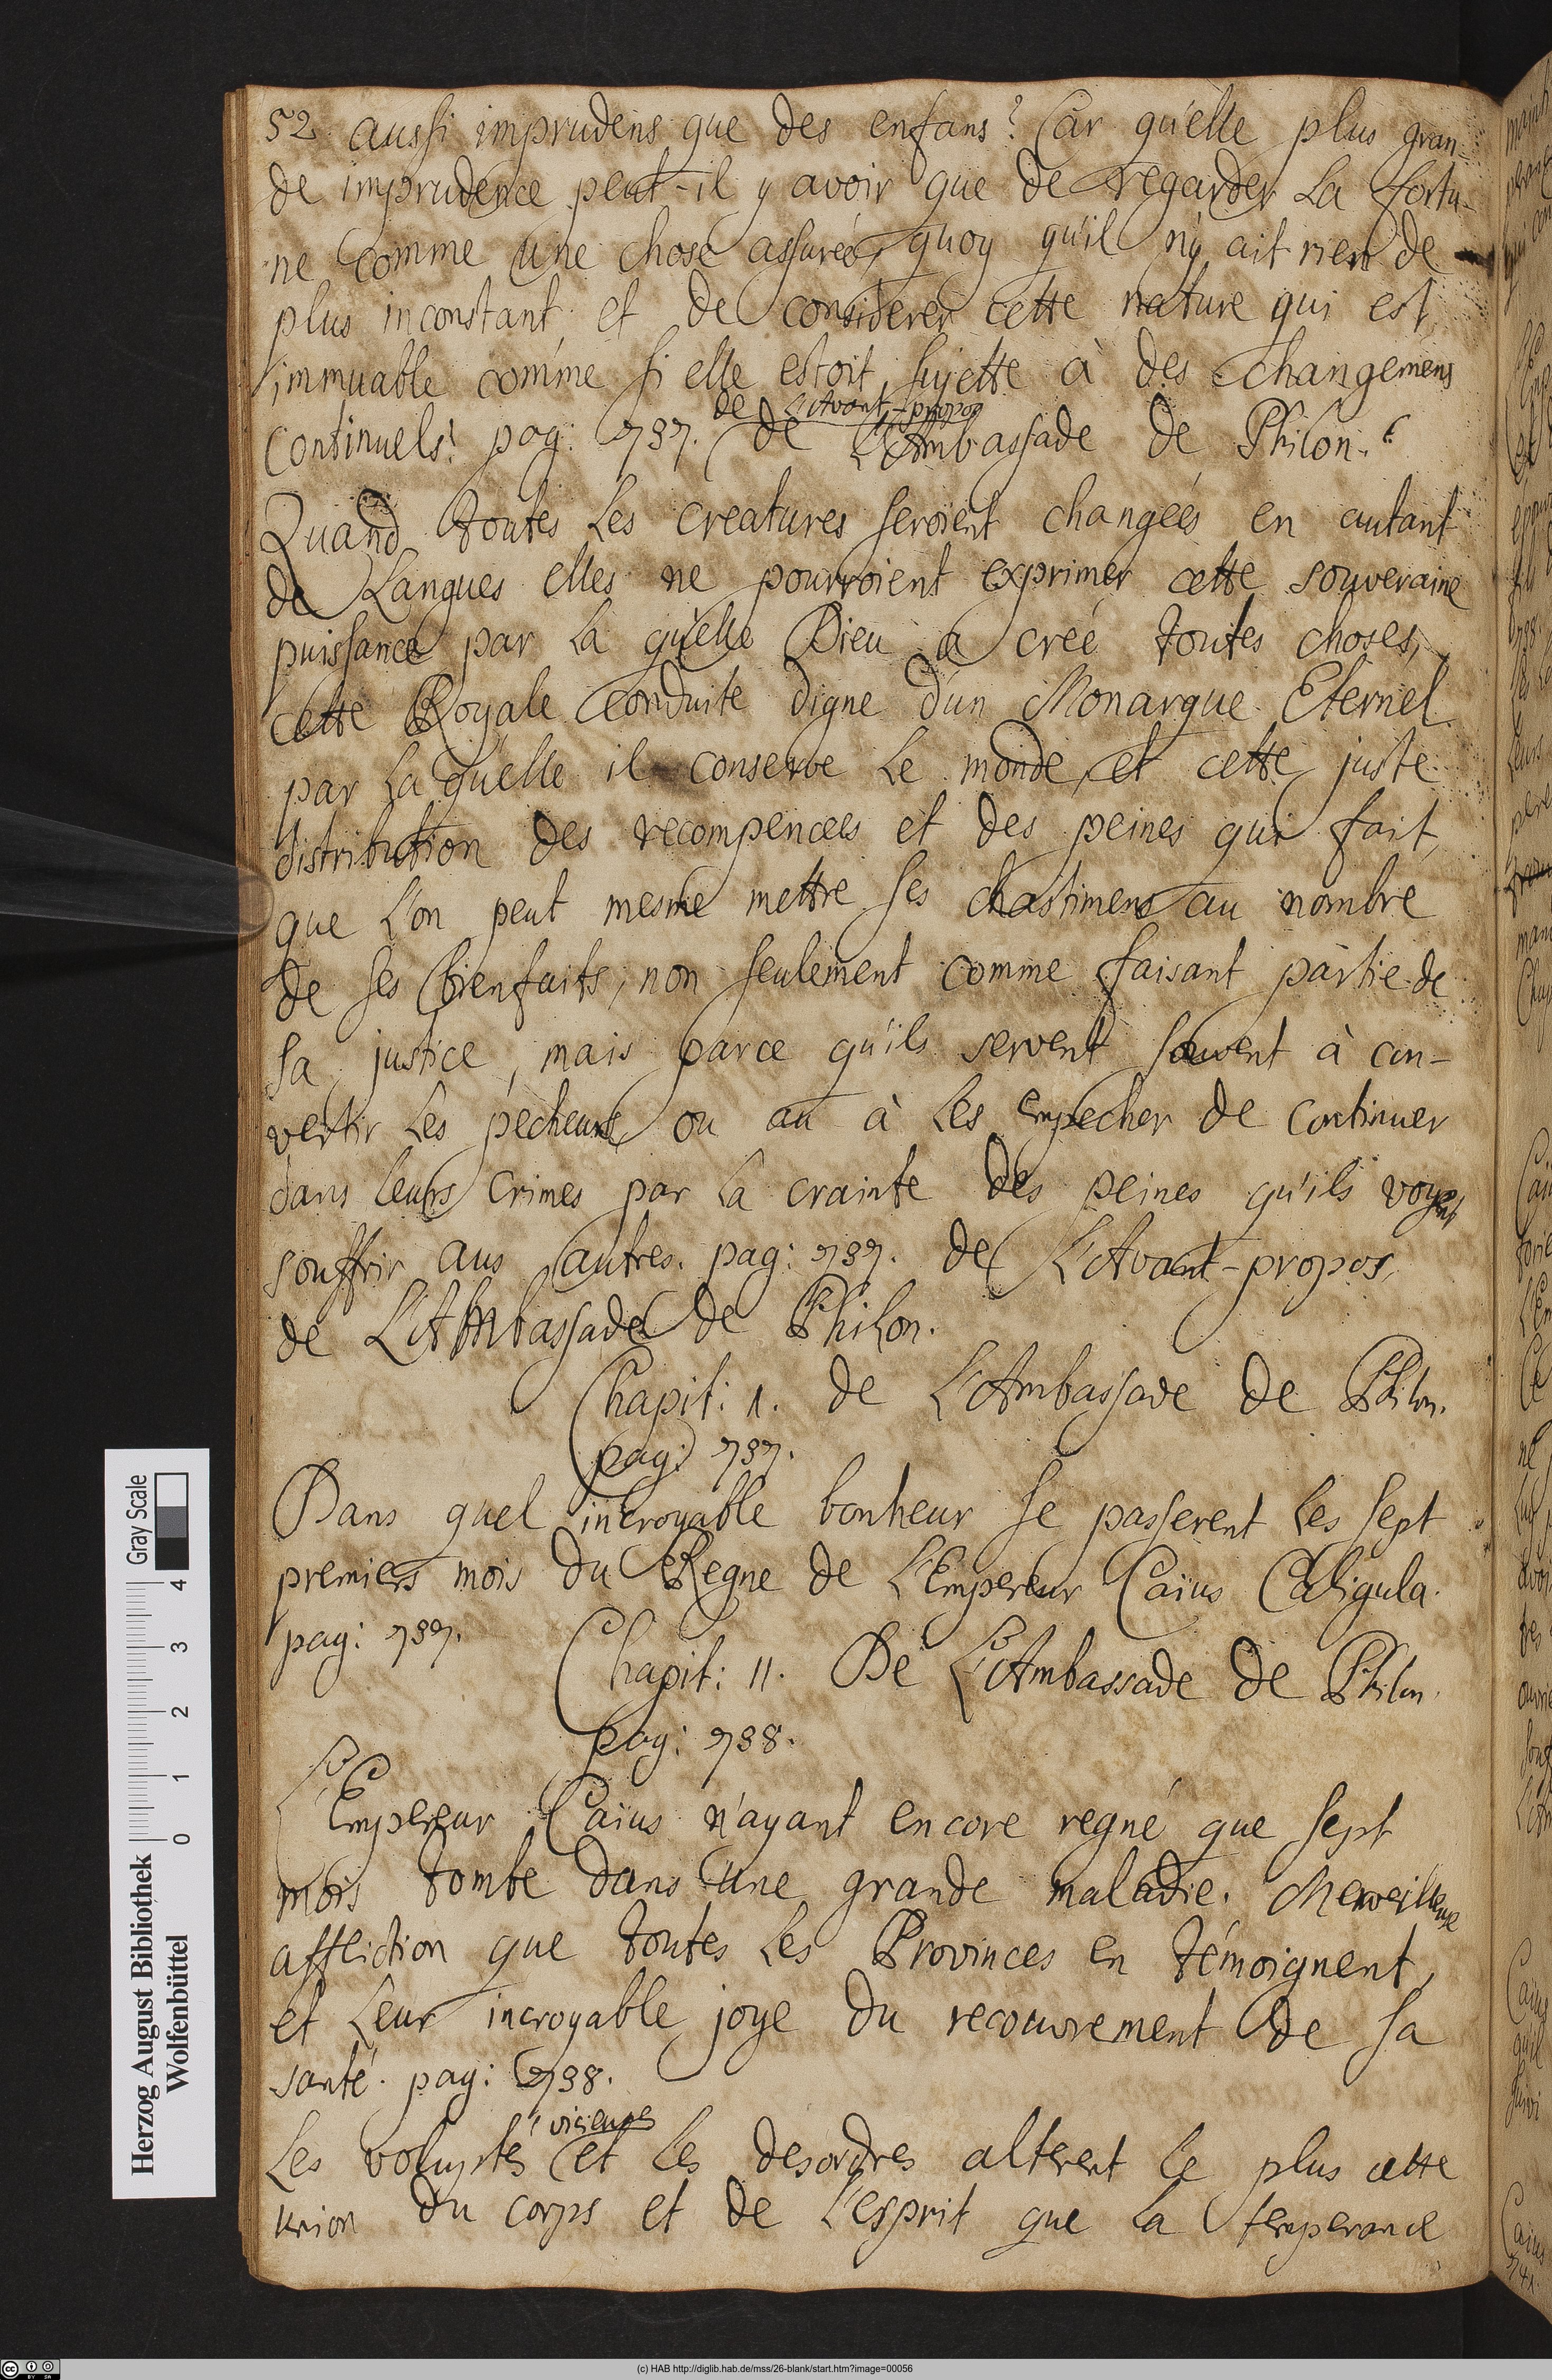 52 aussi imprudens que des enfans? Car qu'elle plus gran-
de imprudence peut-il y avoir que de regarder la fortu-
ne comme une chose assureé, quoy qu'il n'y ait rien de
plus inconstant et de considerer cette nature qui est
immuable comme si elle estoit sujette à des changemens
de L'Avant-propos
continuels? pag: 737. de L'Ambassade de Philon.
Quand toutes les creatures seroient changeés en autant
de Langues elles ne pourroient exprimer cette souveraine
puissance par la qu'elle Dieu a creé toutes choses,
cette Royale conduite digne d'un Monarque Eternel
par la qu'elle il conserve le monde, et cette juste
distribution des recompences et des peines qui fait,
que l'on peut mesme mettre ses chastimens au nombre
de ses bienfaits, non seulement comme faisant partie de
sa justice, mais parce qu'ils servent souvent à con-
vertir les pecheurs ou au à les empecher de continuer
dans leurs crimes par la crainte des peines qu'ils voyent
souffrir aus autres. pag: 737. de L'Avant-propos
de L'Ambassade de Philon.
Chapit: 1. de L'Ambassade de Philon.
pag: 737.
Dans quel incroyable bonheur se passerent les sept
premiers mois du Regne de L'Empereur Caïus Caligula.
pag: 737.
Chapit: 11. De L'Ambassade de Philon.
pag: 738.
L'Empereur Caïus n'ayant encore regné que sept
mois tombe dans une grande maladie. Merveilleuse
affliction que toutes les Provinces en témoignent,
et leur incroyable joye du recouvrement de sa
santé. pag: 738.
vicieuses
Les voluptés et les desordres alterent le plus cette
union du corps et de l'esprit que la temperance
Herzog August Bibliothek
Wolfenbüttel
0 1 2 3 4
Gray Scale
(c) HAB http://diglib.hab.de/mss/26-blank/start.htm?image=00056